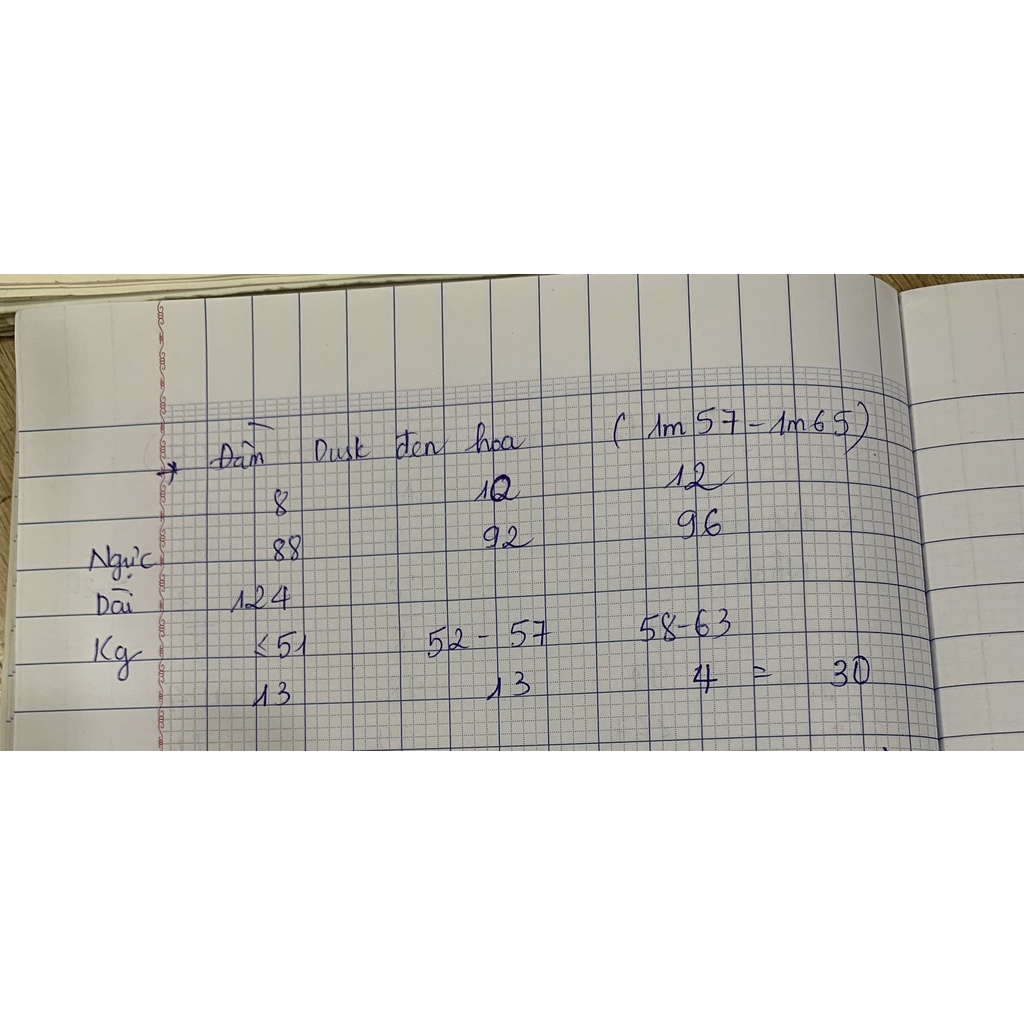 → Đầm Dusk đen hoa ( 1m57 - 1m65)
8 10 12
Ngực 88 92 96
Dài 124
Kg ≤51 52 - 57 58-63
13 13 4 = 30